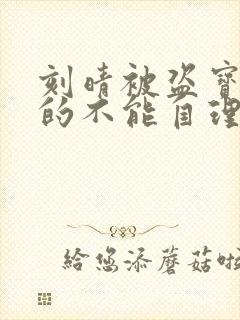 刻晴被盗寶
的不能自理
給您添蘑菇啦